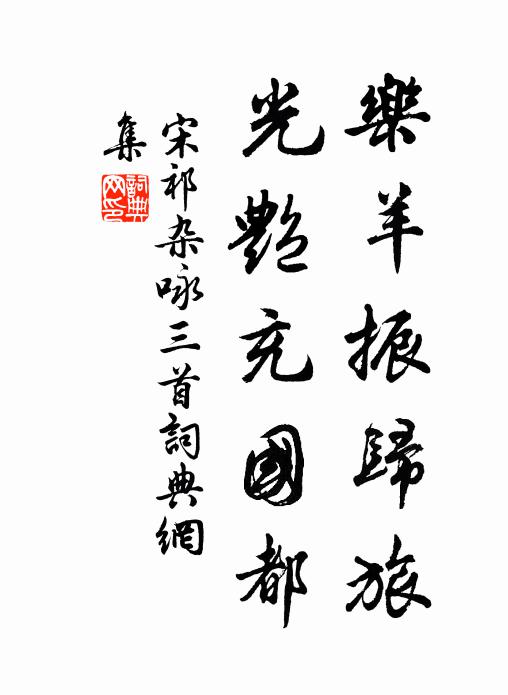 樂羊振歸旅
光艷充國都
宋祁杂咏三首詞典網
集
詞典
网印